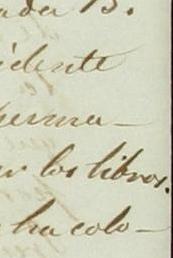 ada B.
idente
perma-
ar los libros.
ha colo-